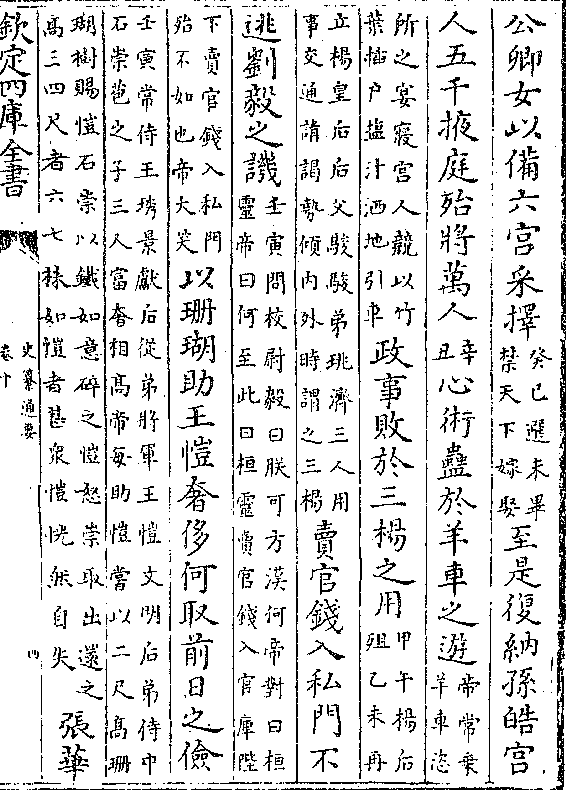 公卿女以備六宮采擇癸巳選未畢禁天下嫁娶至是復納孫皓宮
人五千掖庭殆將萬人辛丑心術蠱於羊車之遊帝常乗羊車恣
所之宴寢宮人競以竹葉揷户鹽汁洒地引車政事敗於三楊之用甲午楊后殂乙未再
立楊皇后后父駿駿弟珧濟三人用事交通請謁勢傾内外時謂之三楊賣官錢入私門不
逃劉毅之譏壬寅問校尉毅曰朕可方漢何帝對曰桓靈帝曰何至此曰桓靈賣官錢入官庫陛
下賣官錢入私門殆不如也帝大笑以珊瑚助王愷奢侈何取前日之儉
壬寅常侍王琇景獻后從弟將軍王愷文明后弟侍中石崇苞之子三人富奢相高帝每助愷嘗以二尺高珊
瑚樹賜愷石崇以鐵如意碎之愷怒崇取出還之高三四尺者六七株如愷者甚衆愷恍然自失張華
欽定四庫全書
史纂通要
卷十
四